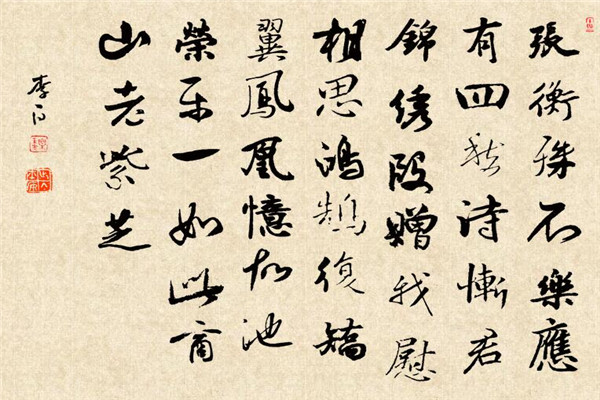 張衡殊不樂應
有四愁詩慚君
錦绣段贈我慰
相思鴻鵠復矯
翼鳳凰憶故池
榮乐一如此商
山老紫芝
李白